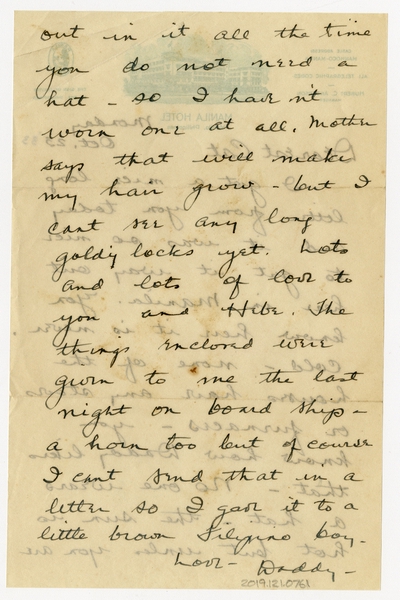 out in it all the time
you do not need a
hat - so I haven't
worn one at all. Mother
says that will make
my hair grow - but I
cant see any long
goldy locks yet. Lots
and lots of love to
you and Hebe. The
things enclosed were
given to me the last
night on board ship -
a horn too but of course
I cant send that in a
letter so I gave it to a
little brown Filipino boy.
Love - Daddy -
2019.121.0751